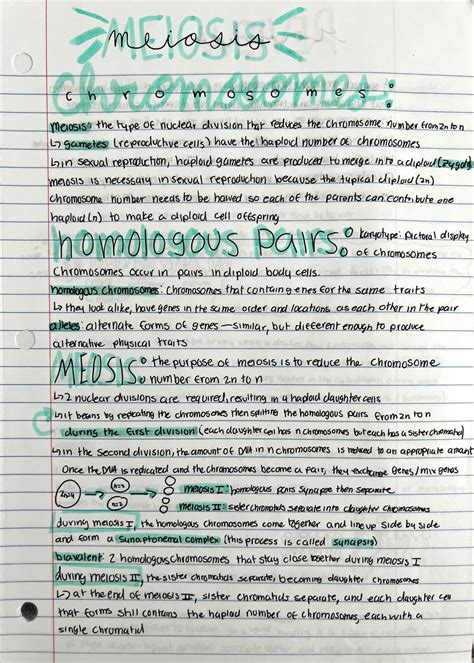 MEIOSIS
meiosis
chromosomes:
chromosomes
meiosis: the type of nuclear division that reduces the chromosome number from 2n to n
↳ gametes (reproductive cells) have the haploid number of chromosomes
↳ in sexual reproduction, haploid gametes are produced to merge into a diploid (zygote)
meiosis is necessary in sexual reproduction because the typical diploid (2n)
chromosome number needs to be halved so each of the parents can contribute one
haploid (n) to make a diploid cell offspring
homologous pairs: karyotype: pictoral display
of chromosomes
Chromosomes occur in pairs in diploid body cells.
homologous chromosomes: Chromosomes that contain genes for the same traits
↳ they look alike, have genes in the same order and locations as each other in the pair
alleles: alternate forms of genes — similar, but different enough to produce
alternative physical traits
MEOSIS: the purpose of meiosis is to reduce the chromosome
number from 2n to n
↳ 2 nuclear divisions are required, resulting in 4 haploid daughter cells
↳ it begins by repeating the chromosomes then splitting the homologous pairs from 2n to n
during the first division (each daughter cell has n chromosomes but each has a sister chromatid)
↳ in the second division, the amount of DNA in n chromosomes is reduced to an appropriate amount
Once the DNA is replicated and the chromosomes become a pair, they exchange genes/mix genes
2n=4 n=2 n=2 meiosis I: homologous pairs synapse then separate
meiosis II: sister chromatids separate into daughter chromosomes
during meiosis I, the homologous chromosomes come together and line up side by side
and form a synaptonemal complex (this process is called synapsis)
bivalent: 2 homologous chromosomes that stay close together during meiosis I
during meiosis II, the sister chromatids separate, becoming daughter chromosomes
↳ at the end of meiosis II, sister chromatids separate, and each daughter cell
that forms still contains the haploid number of chromosomes, each with a
single chromatid